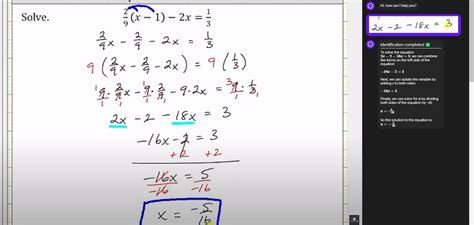 Solve. 2/9(x − 1) − 2x = 1/3
2/9x − 2/9 − 2x = 1/3
9(2/9x − 2/9 − 2x) = 9(1/3)
9/1 · 2/9x − 9/1 · 2/9 − 9 · 2x = 9/1 · 1/3
2x − 2 − 18x = 3
−16x − 2 = 3
+2 +2
−16x/−16 = 5/−16
x = −5/16
Hi, how can I help you?
2x − 2 − 18x = 3
Identification completed
To solve the equation
2x − 2 − 18x = 3, we can combine
like terms on the left side of the
equation:
−16x − 2 = 3
Next, we can isolate the variable by
adding 2 to both sides:
−16x = 5
Finally, we can solve for x by dividing
both sides of the equation by −16:
x = −5/16
So the solution to the equation is
x = −5/16